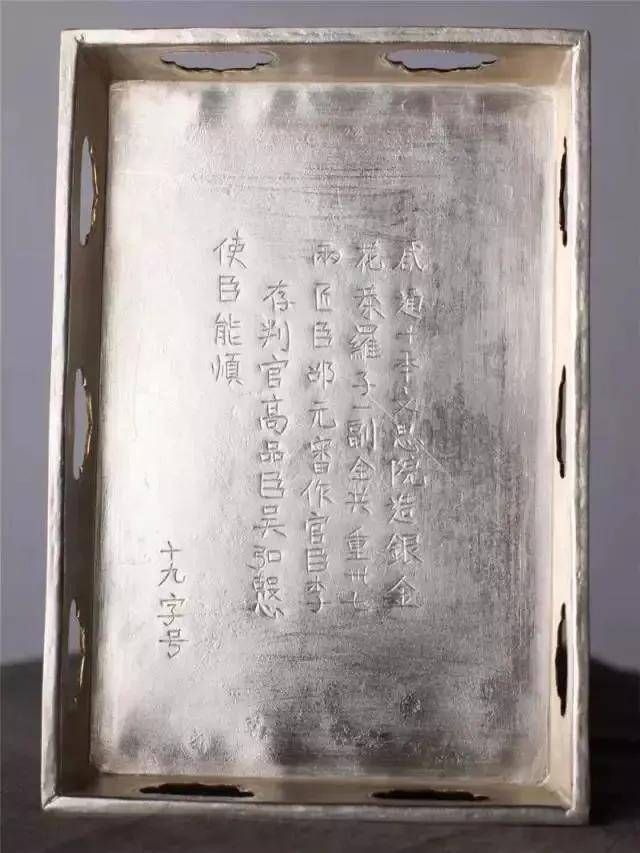 咸通十年文思院造銀金
花茶羅子一副全共重卅七
兩匠臣邵元審作官臣李
存判官高品臣吳弘慤
使臣能順
十九字号